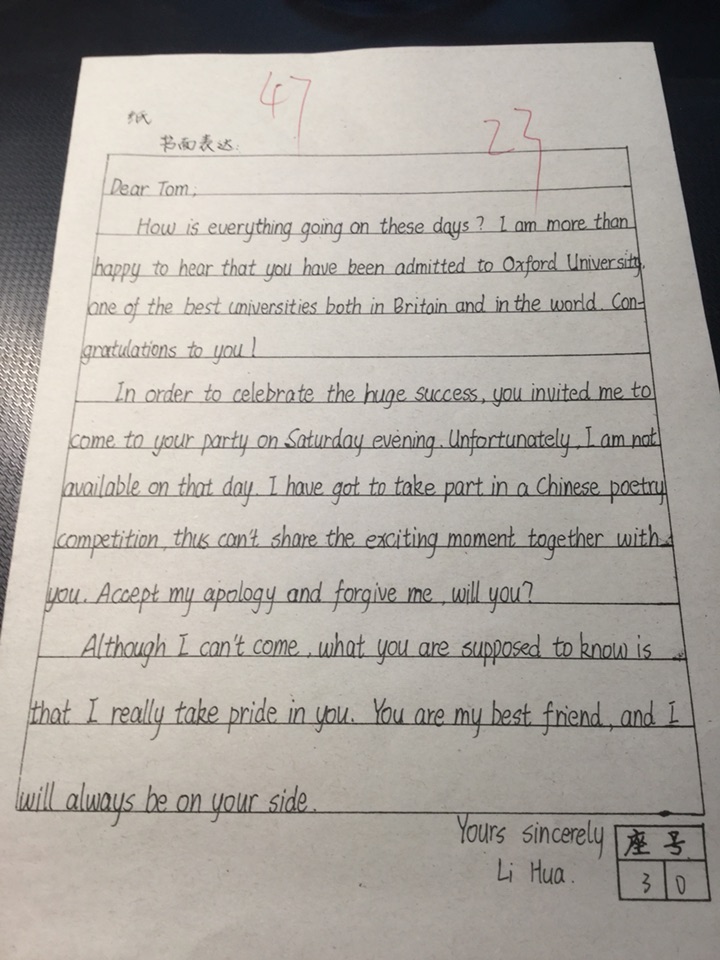 47
23
纸
书面表达:
Dear Tom,
How is everything going on these days? I am more than
happy to hear that you have been admitted to Oxford University,
one of the best universities both in Britain and in the world. Con-
gratulations to you!
In order to celebrate the huge success, you invited me to
come to your party on Saturday evening. Unfortunately, I am not
available on that day. I have got to take part in a Chinese poetry
competition, thus can't share the exciting moment together with
you. Accept my apology and forgive me, will you?
Although I can't come, what you are supposed to know is
that I really take pride in you. You are my best friend, and I
will always be on your side.
Yours sincerely
Li Hua.
座号
30